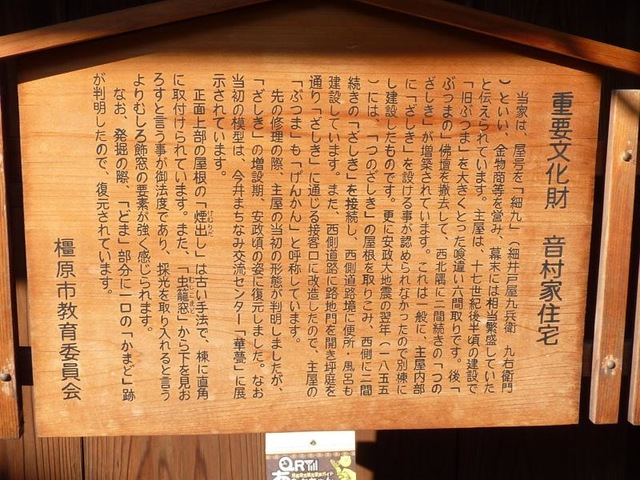 重要文化財　音村家住宅
当家は、屋号を「細九」（細井戸屋九兵衛　九右衛門
）といい、金物商等を営み、幕末には相当繁盛していた
と伝えられています。主屋は、十七世紀後半頃の建設で
「旧ぶつま」を大きくとった喰違い六間取りです。後「
ぶつまの」佛壇を撤去して、西北隅に二間続きの「つの
ざしき」が増築されています。これは一般に、主屋内部
に「ざしき」を設ける事が認められなかったので別棟に
し建設したものです。更に安政大地震の翌年（一八五五
）には、「つのざしき」の屋根を取りこみ、西側に二間
続きの「ざしき」を接続し、西側道路境に便所・風呂も
建設しています。また、西側道路に路地門を開き坪庭を
通り「ざしき」に通じる接客口に改造したので、主屋の
「ぶつま」も「げんかん」と呼称しています。
先の修理の際、主屋の当初の形態が判明しましたが、
「ざしき」の増設期、安政頃の姿に復元しました。なお
当初の模型は、今井まちなみ交流センター「華甍」に展
示されています。
正面上部の屋根の「煙出し」は古い手法で、棟に直角
に取付けられています。また、「虫籠窓」から下を見お
ろすと言う事が御法度であり、採光を取り入れると言う
よりむしろ飾窓の要素が強く感じられます。
なお、発掘の際、「どま」部分に一口の「かまど」跡
が判明したので、復元されています。
橿原市教育委員会
QR